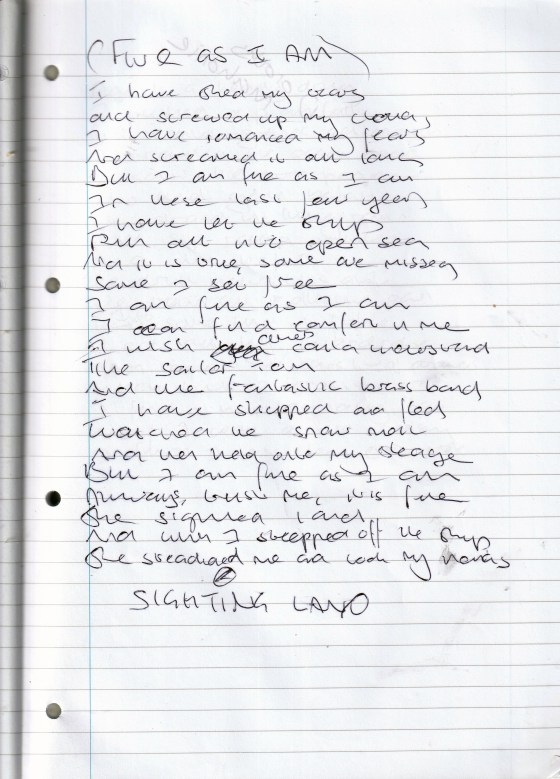 (FINE AS I AM)
I have shed my tears
and screwed up my clouds
I have romanced my fears
And screamed it out loud
But I am fine as I am
In these last few years
I have let the ship
Run out into open sea
And it is true, some are missed
Some I set free
I am fine as I am
I can find comfort in me
I wish others could understand
The sailor I am
And the fantastic brass band
I have stopped and fled
Watched the snow melt
And yet held onto my sledge
But I am fine as I am
Anyways, trust me, it is fine
She sighted land
And when I stepped off the ship
She steadied me and took my hands
SIGHTING LAND